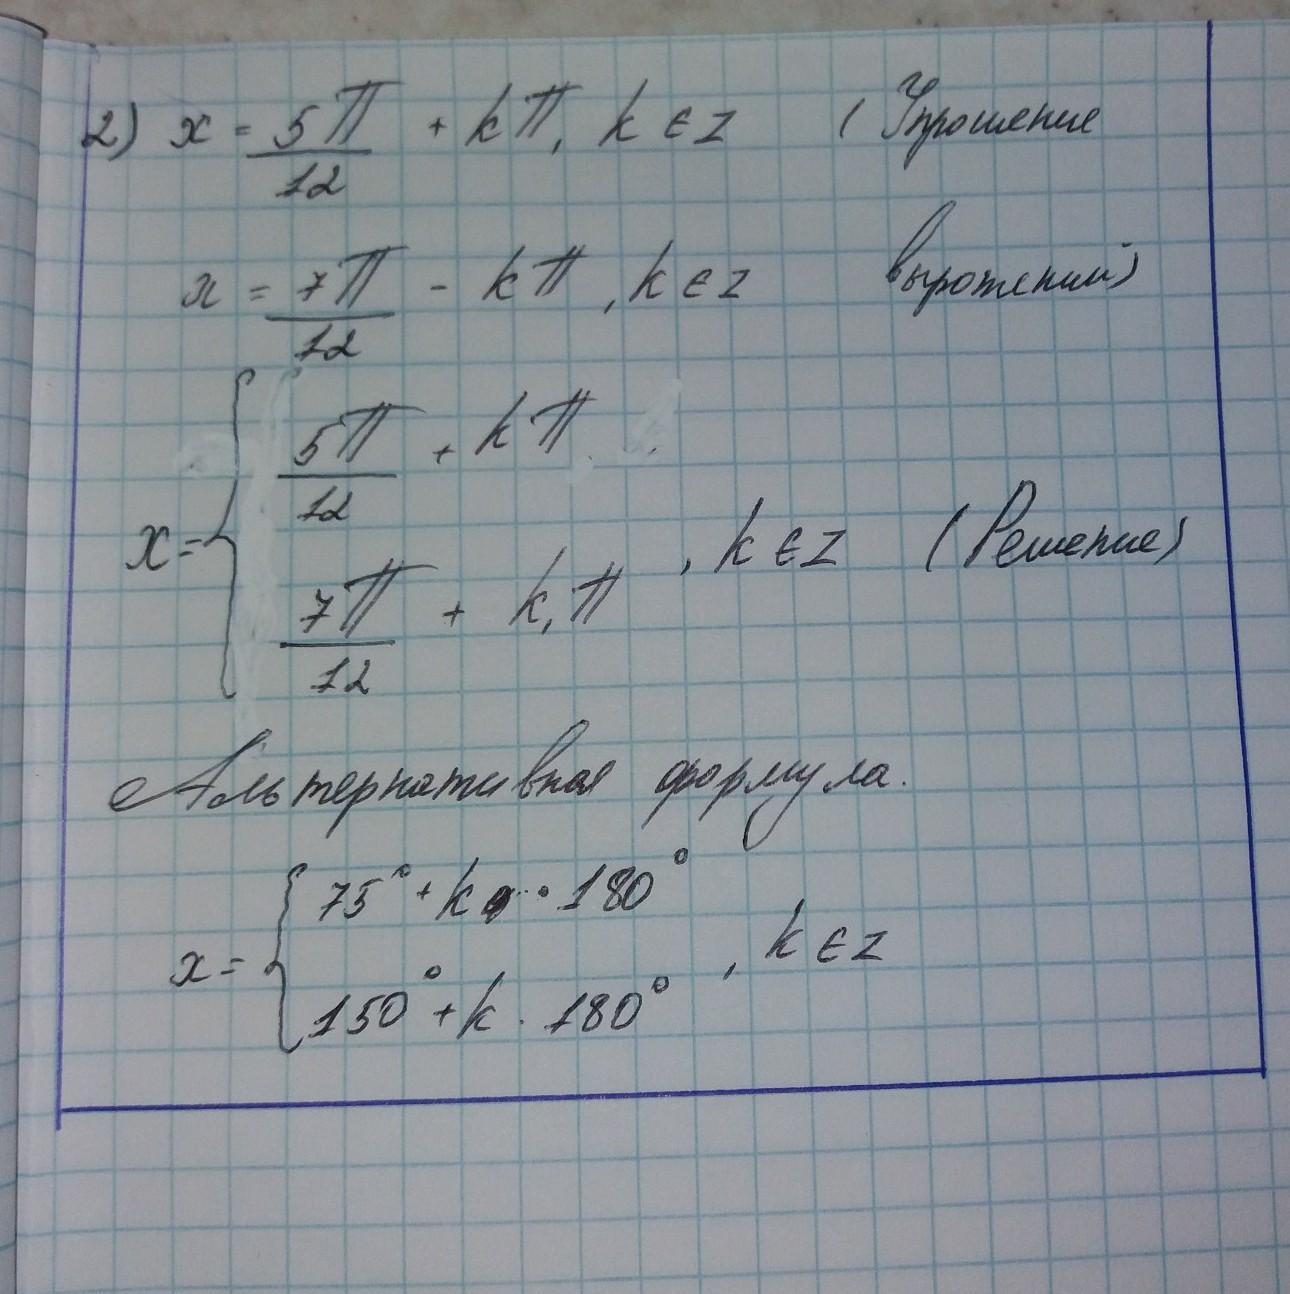 2) x = 5π/12 + kπ, k ∈ z (Упрошение
x = 7π/12 - kπ, k ∈ z вырожений)
x = { 5π/12 + kπ
7π/12 + k,π , k ∈ z (Решение)
Альтернативная формула.
x = { 75° + k · 180°
150° + k · 180° , k ∈ z